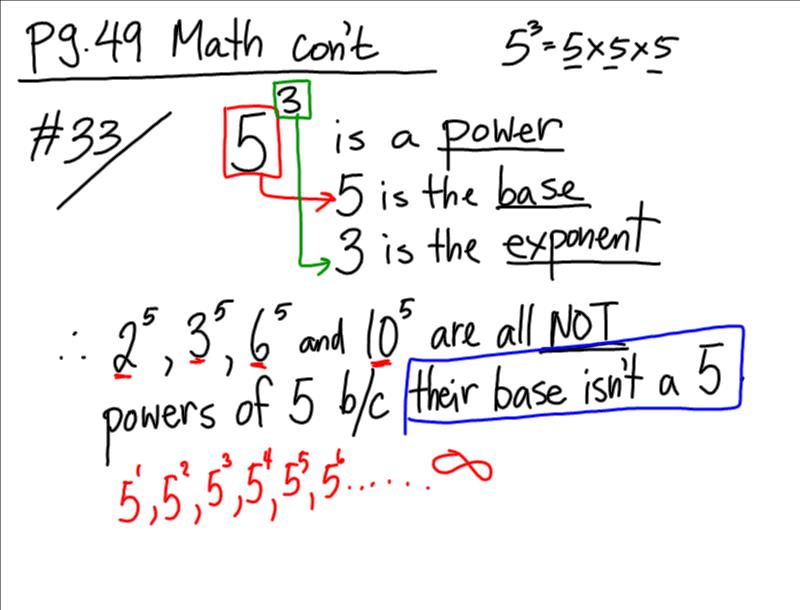 Pg.49 Math con't
5³ = 5 × 5 × 5
#33
5³ is a power
5 is the base
3 is the exponent
∴ 2⁵, 3⁵, 6⁵ and 10⁵ are all NOT
powers of 5 b/c their base isn't a 5
5¹, 5², 5³, 5⁴, 5⁵, 5⁶...... ∞